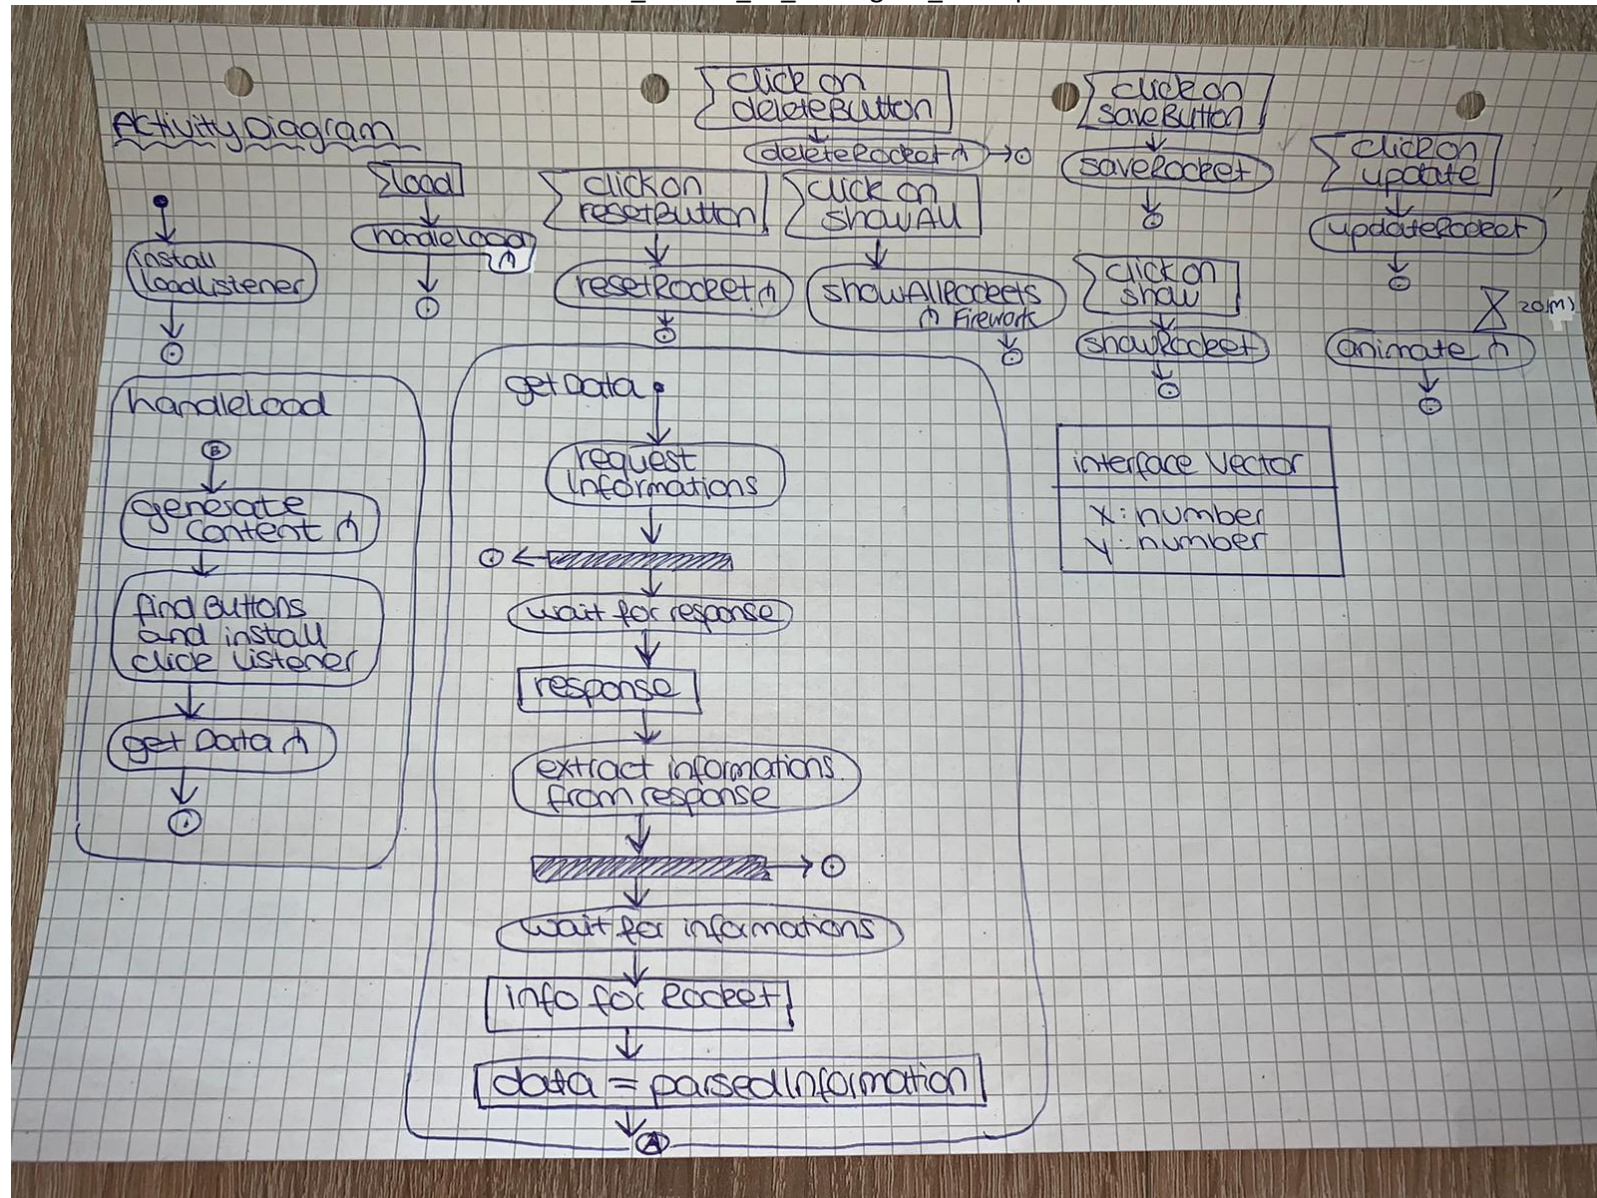 Activity Diagram
install
loadlistener
load
handleload
click on
resetButton
resetRocket
click on
deleteButton
deleteRocket
click on
showAll
showAllRockets
Firework
click on
saveButton
saveRocket
click on
show
showRocket
click on
update
updateRocket
animate
handleLoad
generate
content
find Buttons
and install
click listener
get Data
getData
request
informations
wait for response
response
extract informations
from response
wait for informations
info for Rocket
data = parsedInformation
A
interface Vector
x: number
y: number